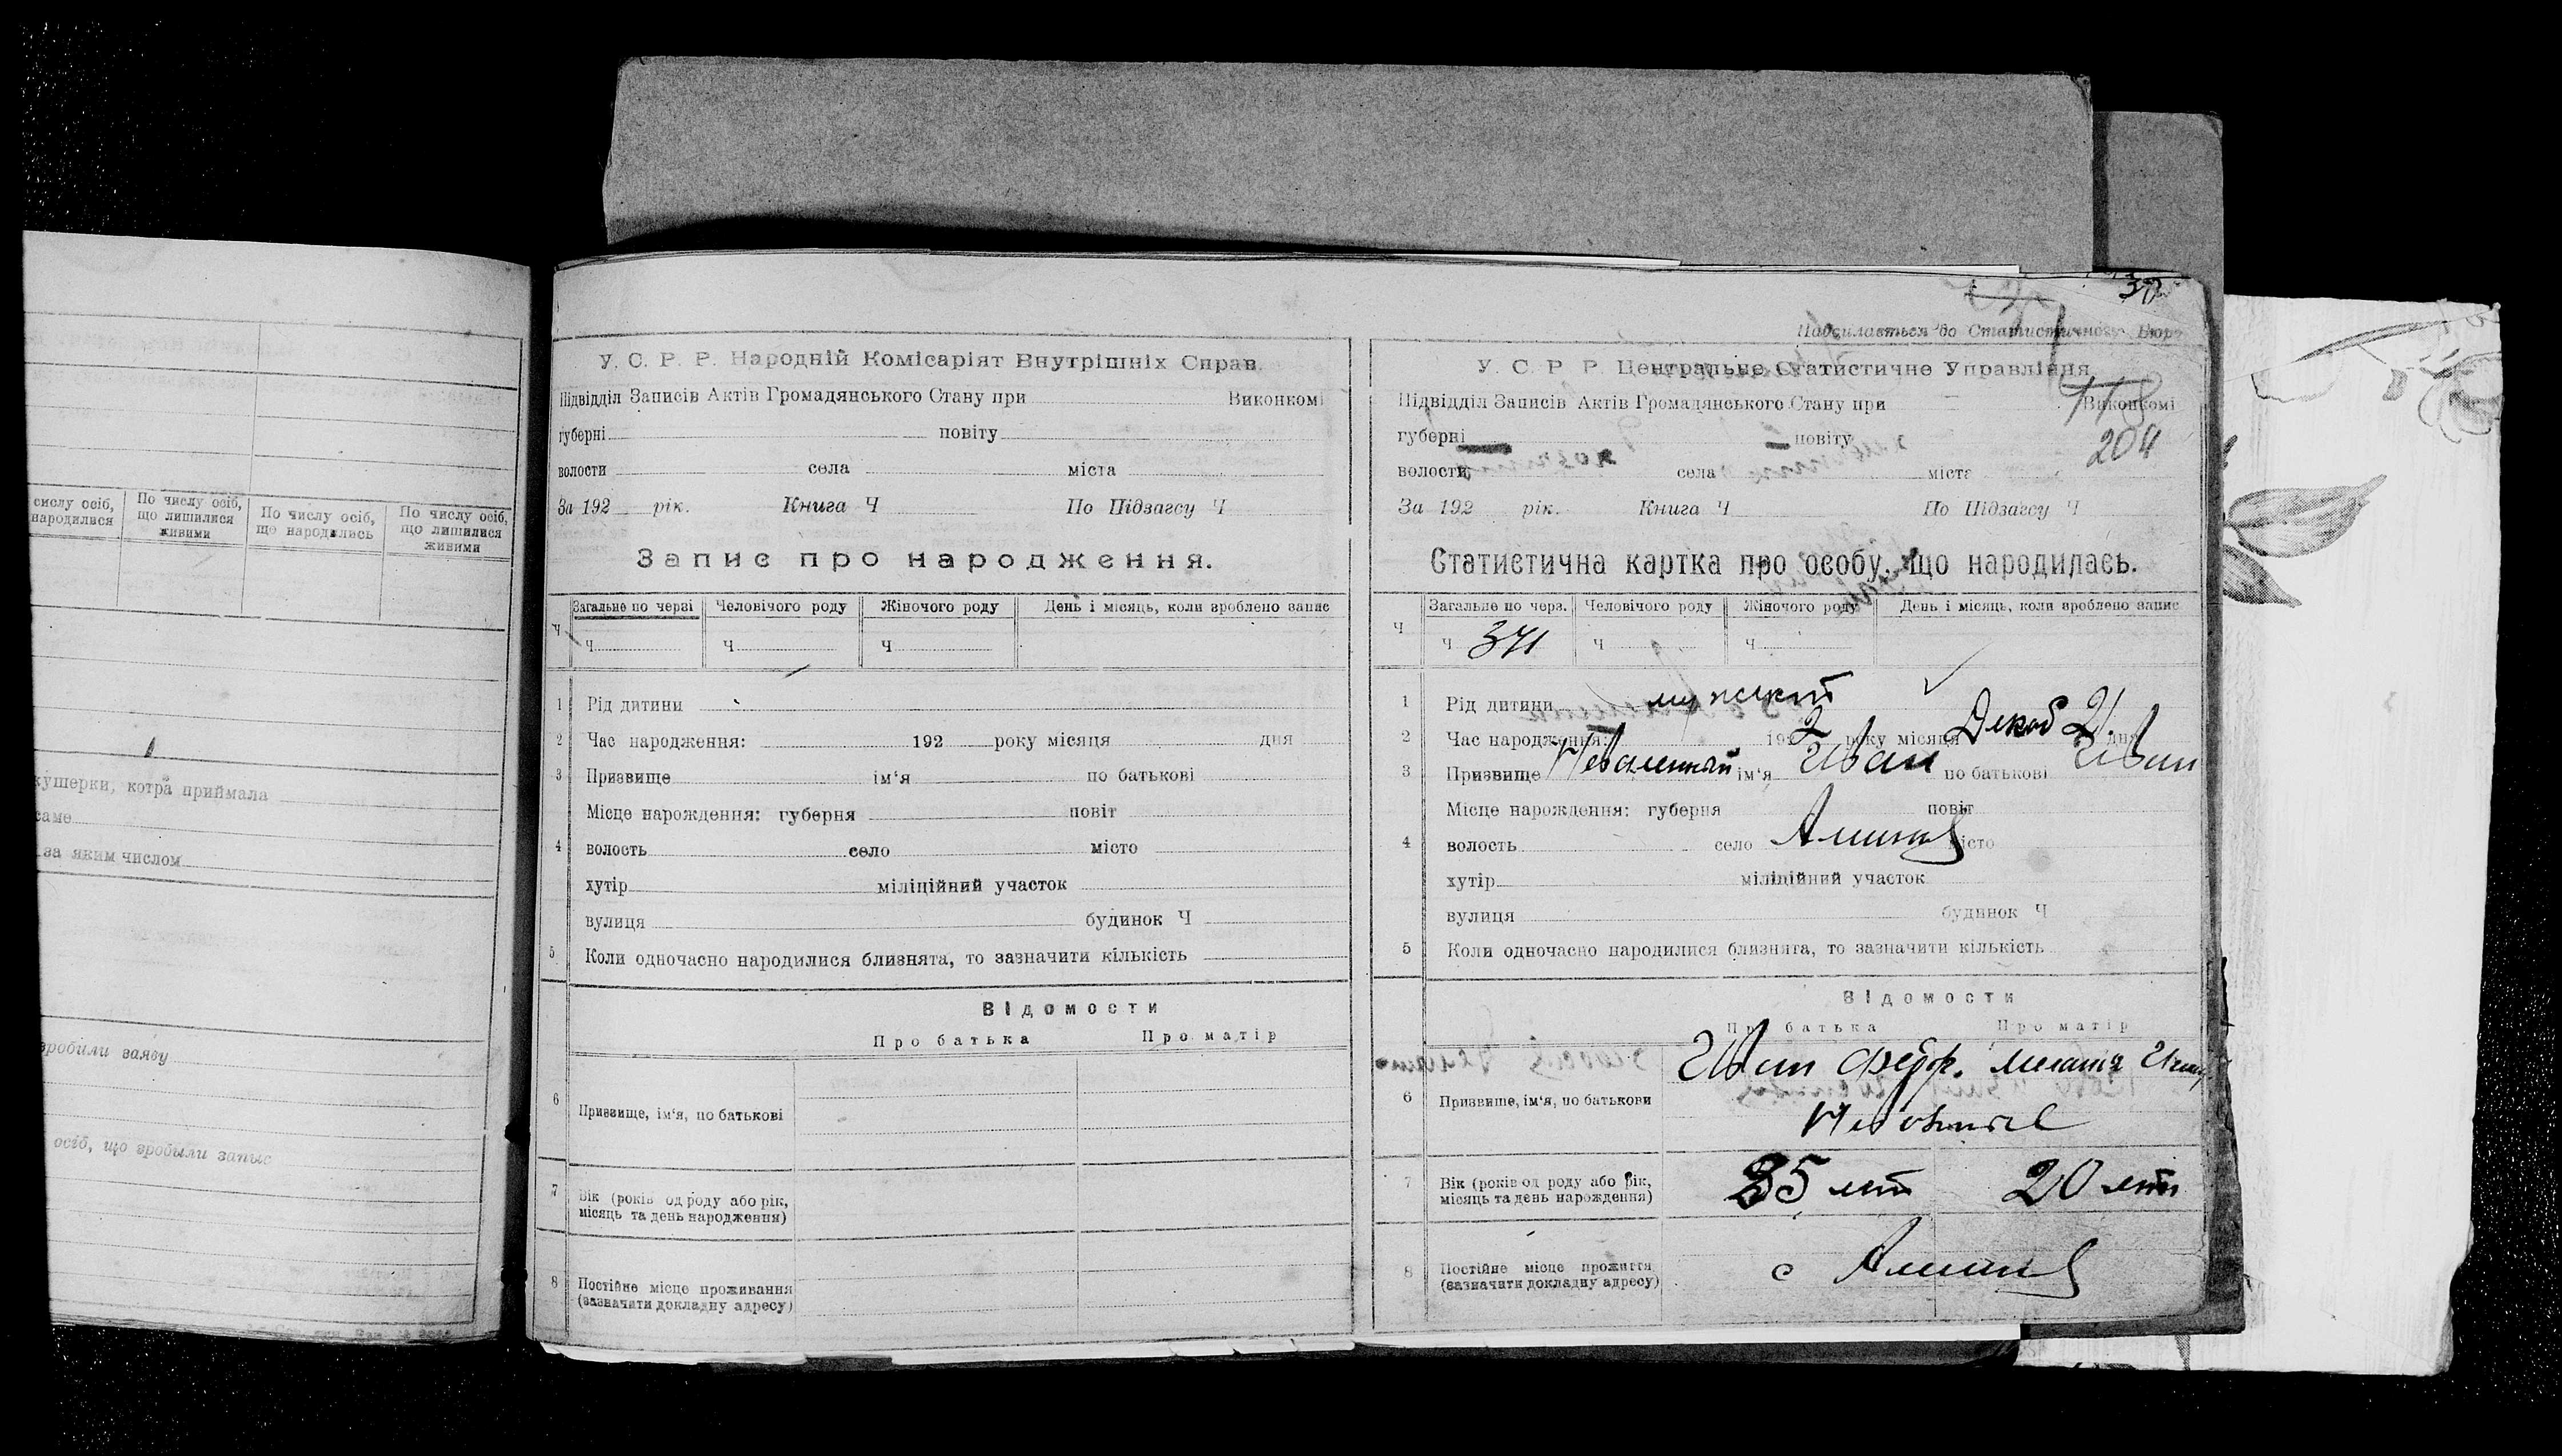 числу осіб, народилися
По числу осіб, що лишилися живими
По числу осіб, що народились
По числу осіб, що лишилися живими
кушерки, котра приймала
саме
за яким числом
зробили заяву
осіб, що зробили запис
У. С. Р. Р. Народній Комісаріят Внутрішніх Справ.
Підвідділ Записів Актів Громадянського Стану при Виконкомі
губерні повіту
волости села міста
За 192 рік. Книга Ч По Підзагсу Ч
Запис про народження.
Загальне по черзі Человічого роду Жіночого роду День і місяць, коли зроблено запис
Ч Ч Ч Ч
1 Рід дитини
2 Час народження: 192 року місяця дня
3 Призвище ім'я по батькові
Місце нарождення: губерня повіт
4 волость село місто
хутір міліційний участок
вулиця будинок Ч
5 Коли одночасно народилися близнята, то зазначити кількість
Відомости
Про батька Про матір
6 Призвище, ім'я, по батькові
7 Вік (років од роду або рік, місяць та день народження)
8 Постійне місце проживання (зазначити докладну адресу)
Надсилається до Статистичного Бюро
У. С. Р. Р. Центральне Статистичне Управління
Підвідділ Записів Актів Громадянського Стану при Виконкомі
губерні повіту
204
волости села міста
За 192 рік. Книга Ч По Підзагсу Ч
Статистична картка про особу, що народилась.
Загальне по черз. Человічого роду Жіночого роду День і місяць, коли зроблено запис
Ч Ч 341 Ч Ч
1 Рід дитини мужской
2 Час народження: 192 2 року місяця Декаб 21. дня
3 Призвище ім'я Иван по батькові Иван
Місце нарождення: губерня повіт
4 волость село місто
хутір міліційний участок
вулиця будинок Ч
5 Коли одночасно народилися близнята, то зазначити кількість
Відомости
Про батька Про матір
Иван
6 Призвише, ім'я, по батькови
7 Вік (років од роду або рік, місяць та день нарождення) 35 лет 20 лет
8 Постійне місце прожиття (зазначити докладну адресу) с